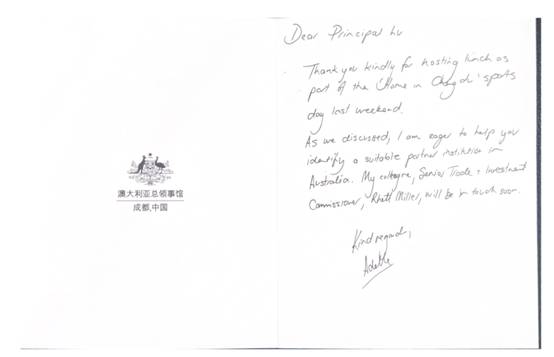 澳大利亚总领事馆
成都,中国
Dear Principal Lu
Thank you kindly for hosting lunch as
part of the 'Home in Chengdu' sports
day last weekend.
As we discussed, I am eager to help you
identify a suitable partner institution in
Australia. My colleague, Senior Trade + Investment
Commissioner, Rhett Miller, will be in touch soon.
Kind regards,